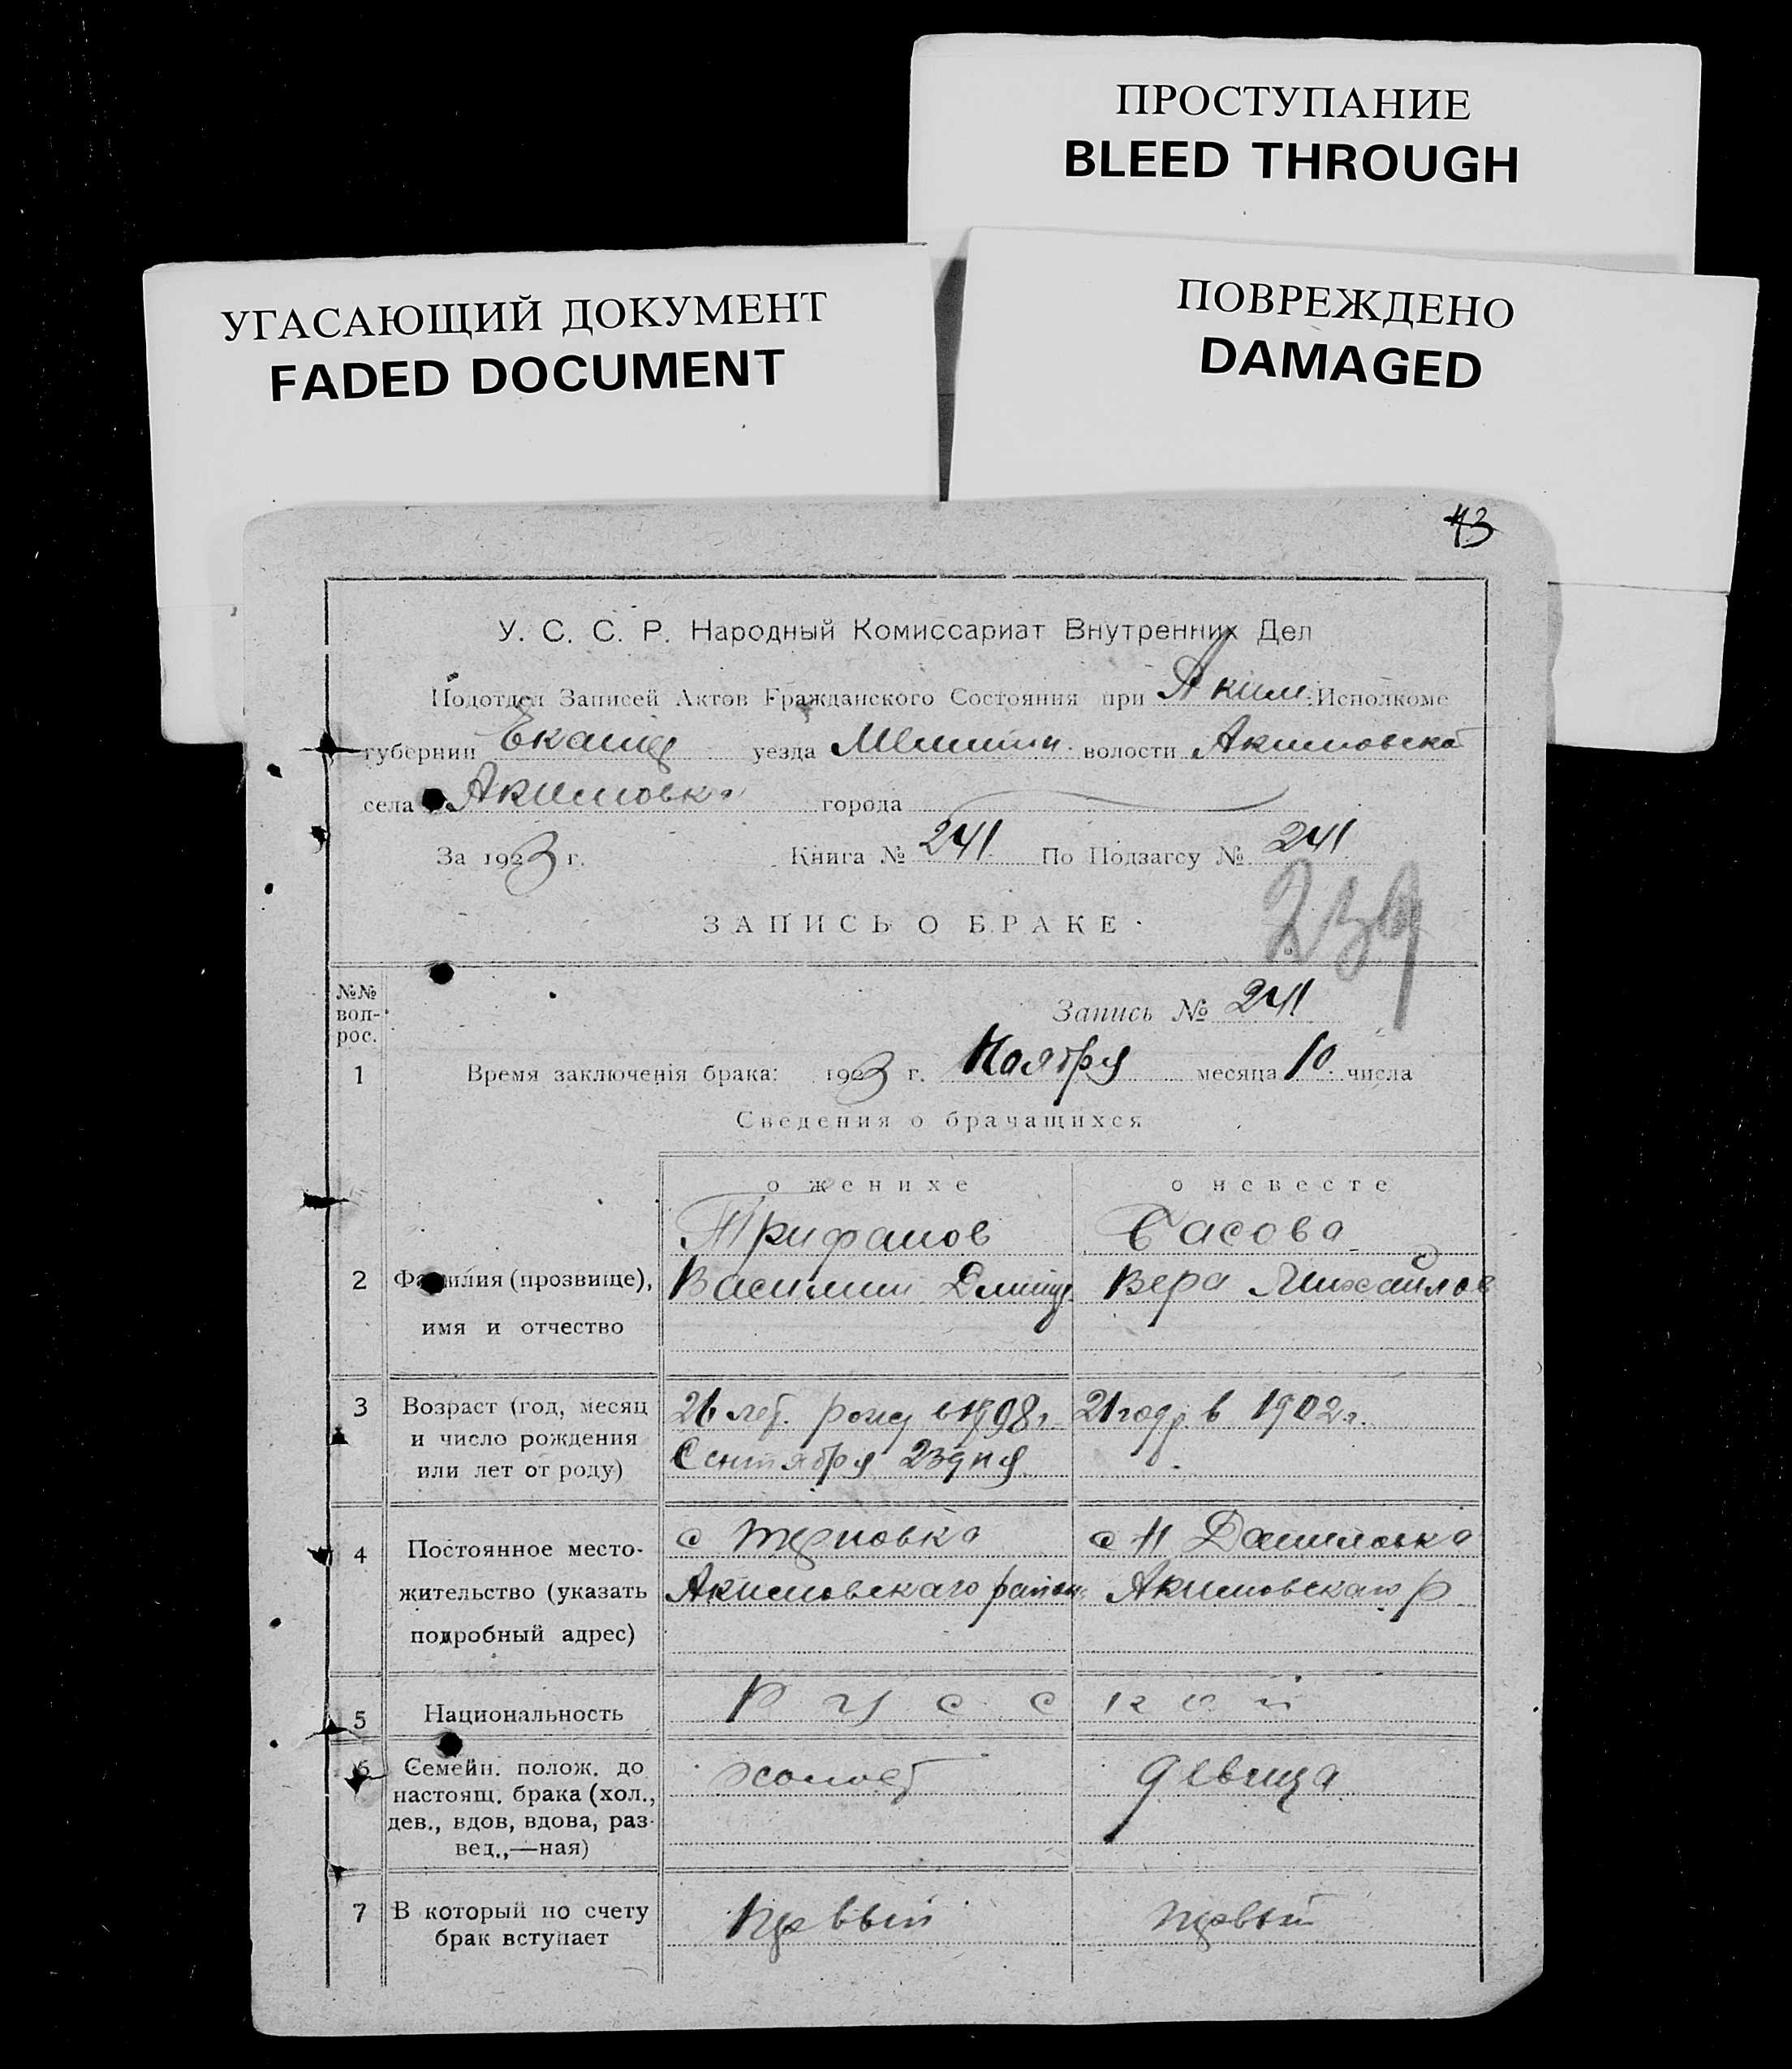 ПРОСТУПАНИЕ
BLEED THROUGH
УГАСАЮЩИЙ ДОКУМЕНТ
FADED DOCUMENT
ПОВРЕЖДЕНО
DAMAGED
43
У. С. С. Р. Народный Комиссариат Внутренних Дел
Подотдел Записей Актов Гражданского Состояния при Аким. Исполкоме
губернии Екатер уезда Мелитп. волости Акимовской
села Акимовка города
За 1923 г. Книга № 241 По Подзагсу № 241
239
ЗАПИСЬ О БРАКЕ
№№ воп-рос.
Запись № 241
1 Время заключенія брака: 1923 г. Ноября месяца 10 числа
Сведения о брачащихся
о женихе о невесте
Трифанов Басова
2 Фамилия (прозвище), Василий Дмитр. Вера Михайлов
имя и отчество
3 Возраст (год, месяц 21 год. в 1902 г.
и число рождения Сентября 23 дня
или лет от роду)
4 Постоянное место- с Терновка с Н Даниловка
жительство (указать Акимовскаго район Акимовскаго р
подробный адрес)
5 Национальность Русской
6 Семейн. полож. до холост девица
настоящ. брака (хол.,
дев., вдов, вдова, раз-
вед.,—ная)
7 В который по счету первый первый
брак вступает